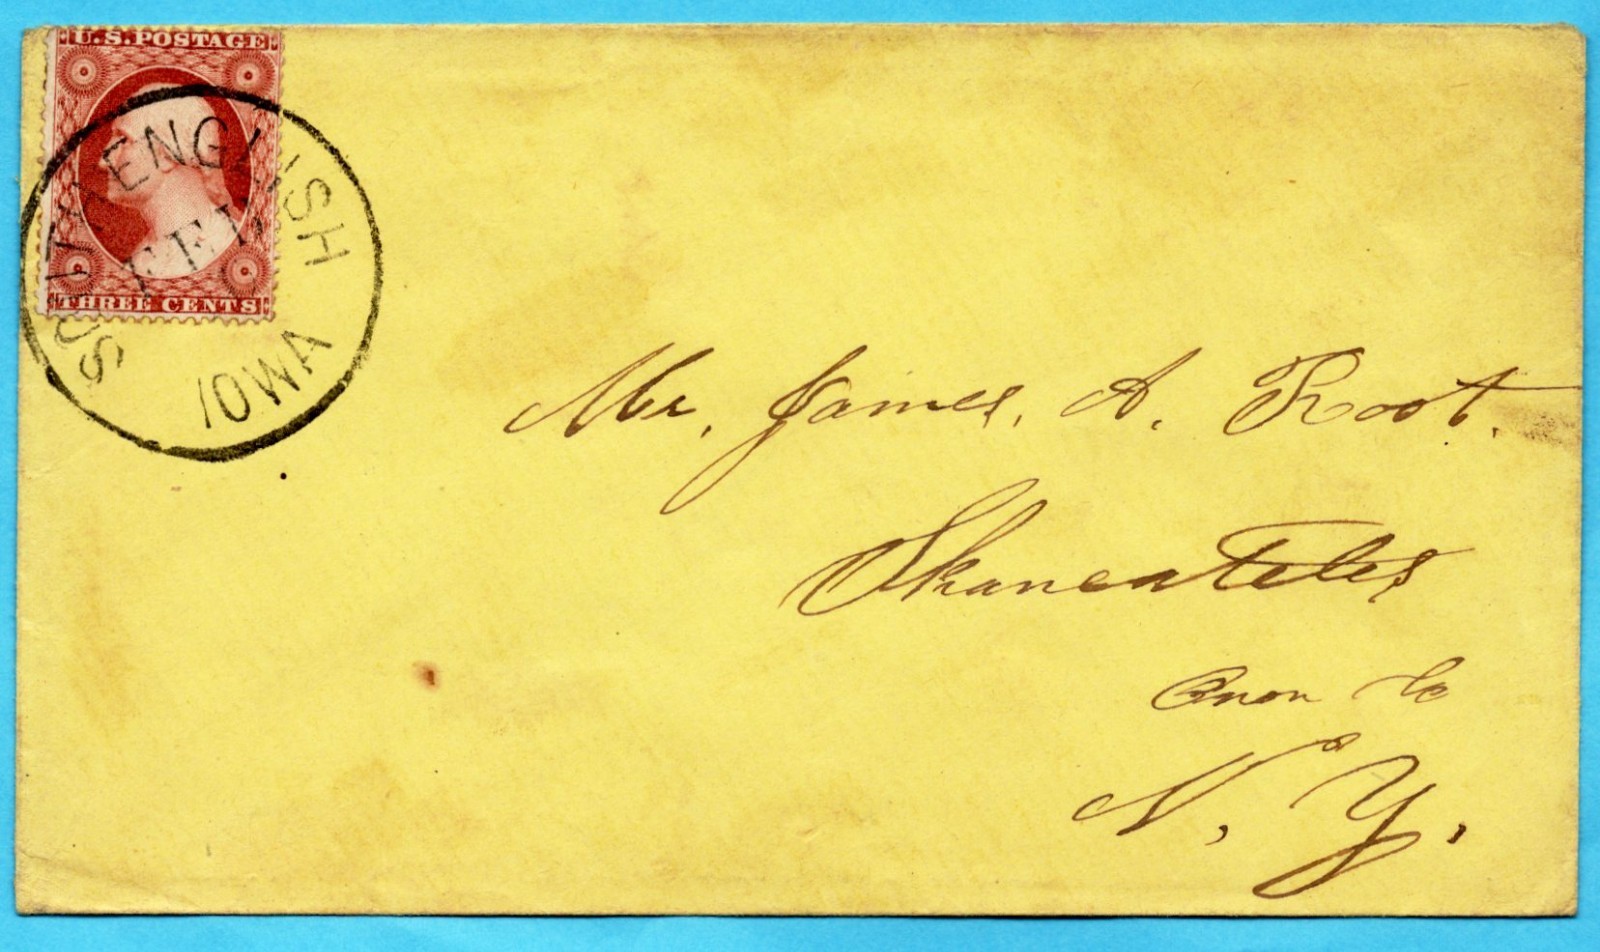 U.S. POSTAGE
THREE CENTS
SOUTH ENGLISH
FEB
IOWA
Mr. James. A. Root.
Skaneateles
Onon Co
N. Y.